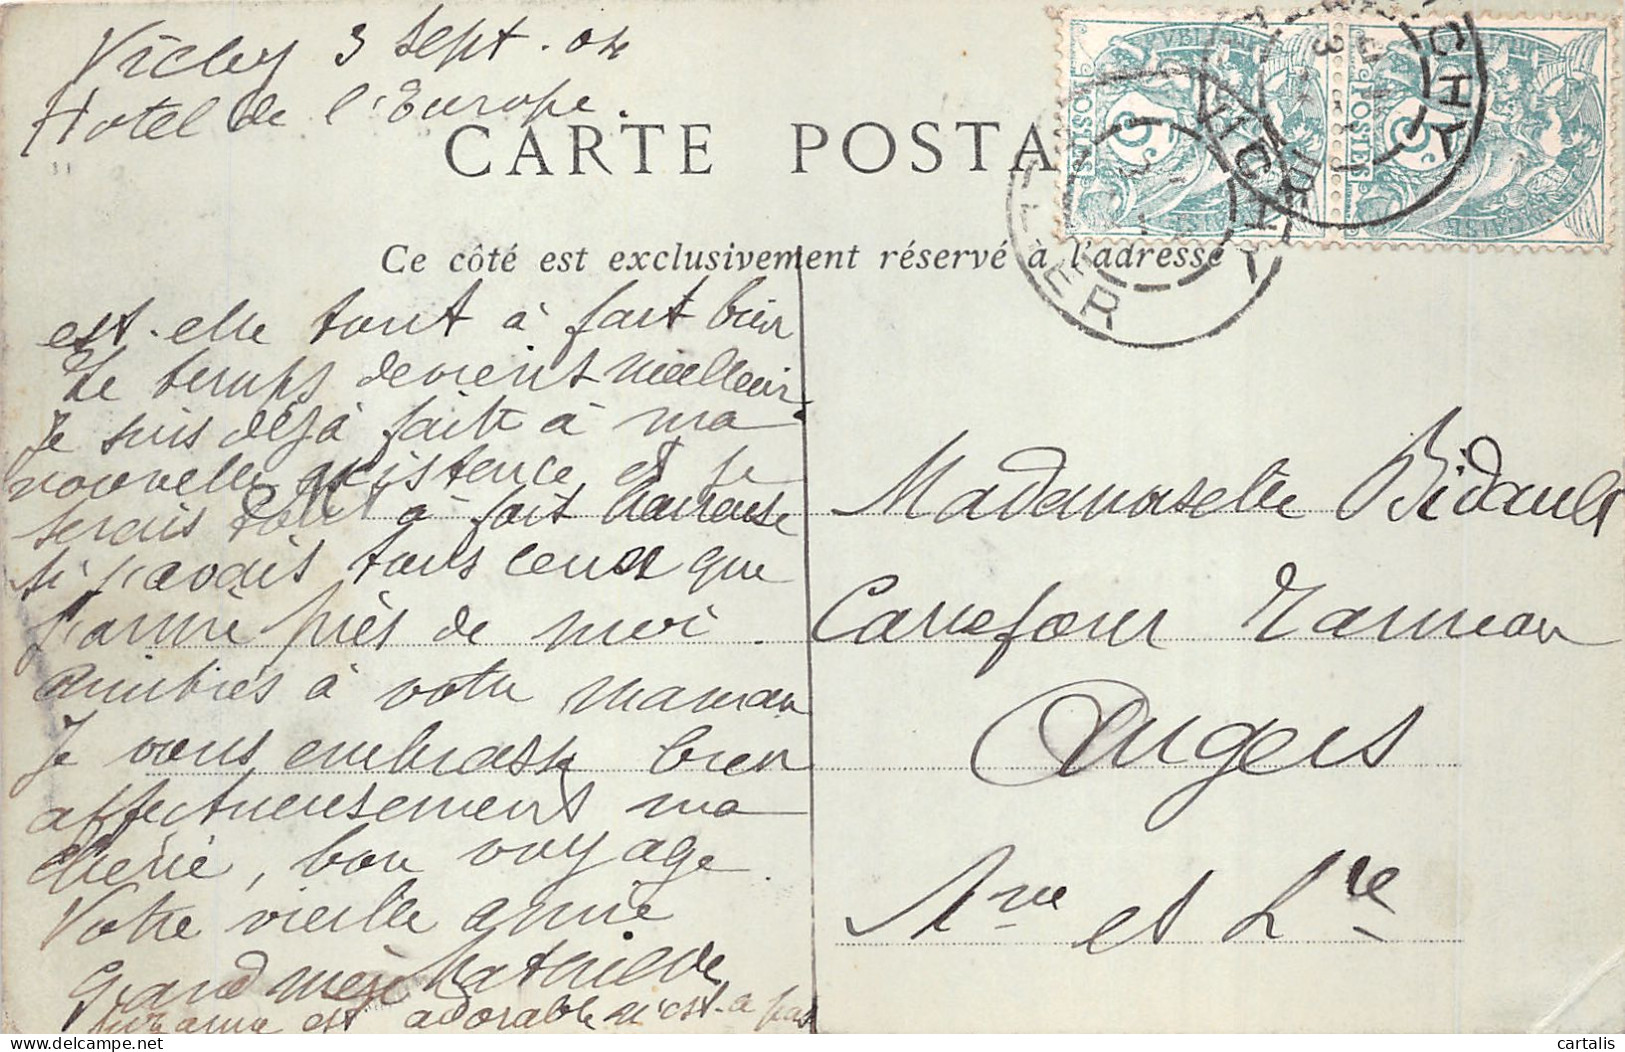 Vichy 3 Sept. 04
Hotel de l'Europe.
CARTE POSTA
Ce côté est exclusivement réservé à l'adresse
est-elle tout à fait bien
Le temps devient meilleur
Je suis déjà faite à ma
nouvelle existence et je
serais tout à fait heureuse
si j'avais tous ceux que
j'aime près de moi.
Amitiés à votre maman
Je vous embrasse bien
affectueusement ma
chérie, bon voyage.
Votre vieille amie
Grand mère Mathilde
Suzanne est adorable n'est-ce pas
Mademoiselle Bidault
Carrefour Rameau
Angers
Mne et Lre
POSTES
5c
POSTES
5c
VICHY
ALLIER
VICHY
cartalis